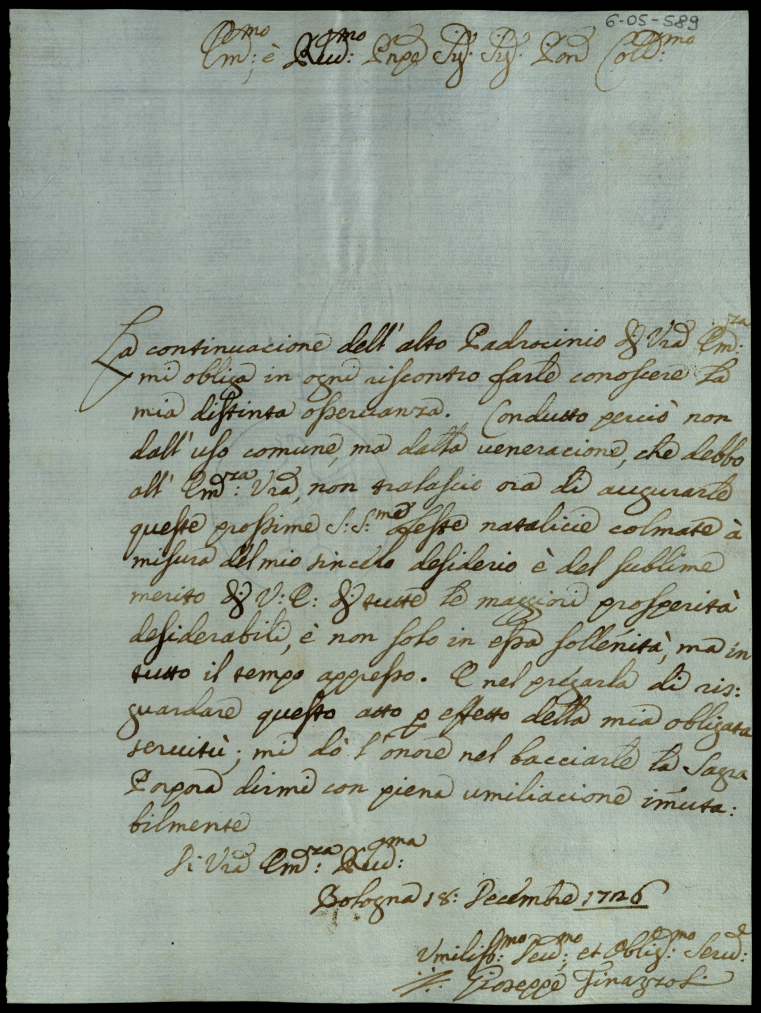 6-05-589
Em:mo è Reud:mo Pnpe Sig: Sig: Pand Coll:mo
La continuacione dell' alto Padrocinio di Vra Em:za
mi obliga in ogni riscontro farle conoscere la
mia distinta osseruanza. Condutto perciò non
dall' uso comune, ma dalla veneracione, che debbo
all' Em:za Vra, non tralascio ora di augurarle
queste prossime S:S:me Feste natalicie colmate à
misura del mio sincero desiderio è del sublime
merito di V: E: di tutte le maggiori prosperità
desiderabili, è non solo in essa sollenità, ma in
tutto il tempo appresso. E nel pregarla di ris:
guardare questo atto p effetto della mia obligata
seruitù; mi dò l'onore nel bacciarle la Sagra
Porpora dirmi con piena umiliacione imuta:
bilmente
Di Vra Em:za Reud:ma
Bologna 18: Decembre 1726
Umiliss:mo Deu:mo et Oblig:mo Serud:e
Gioseppe Tinazzoli